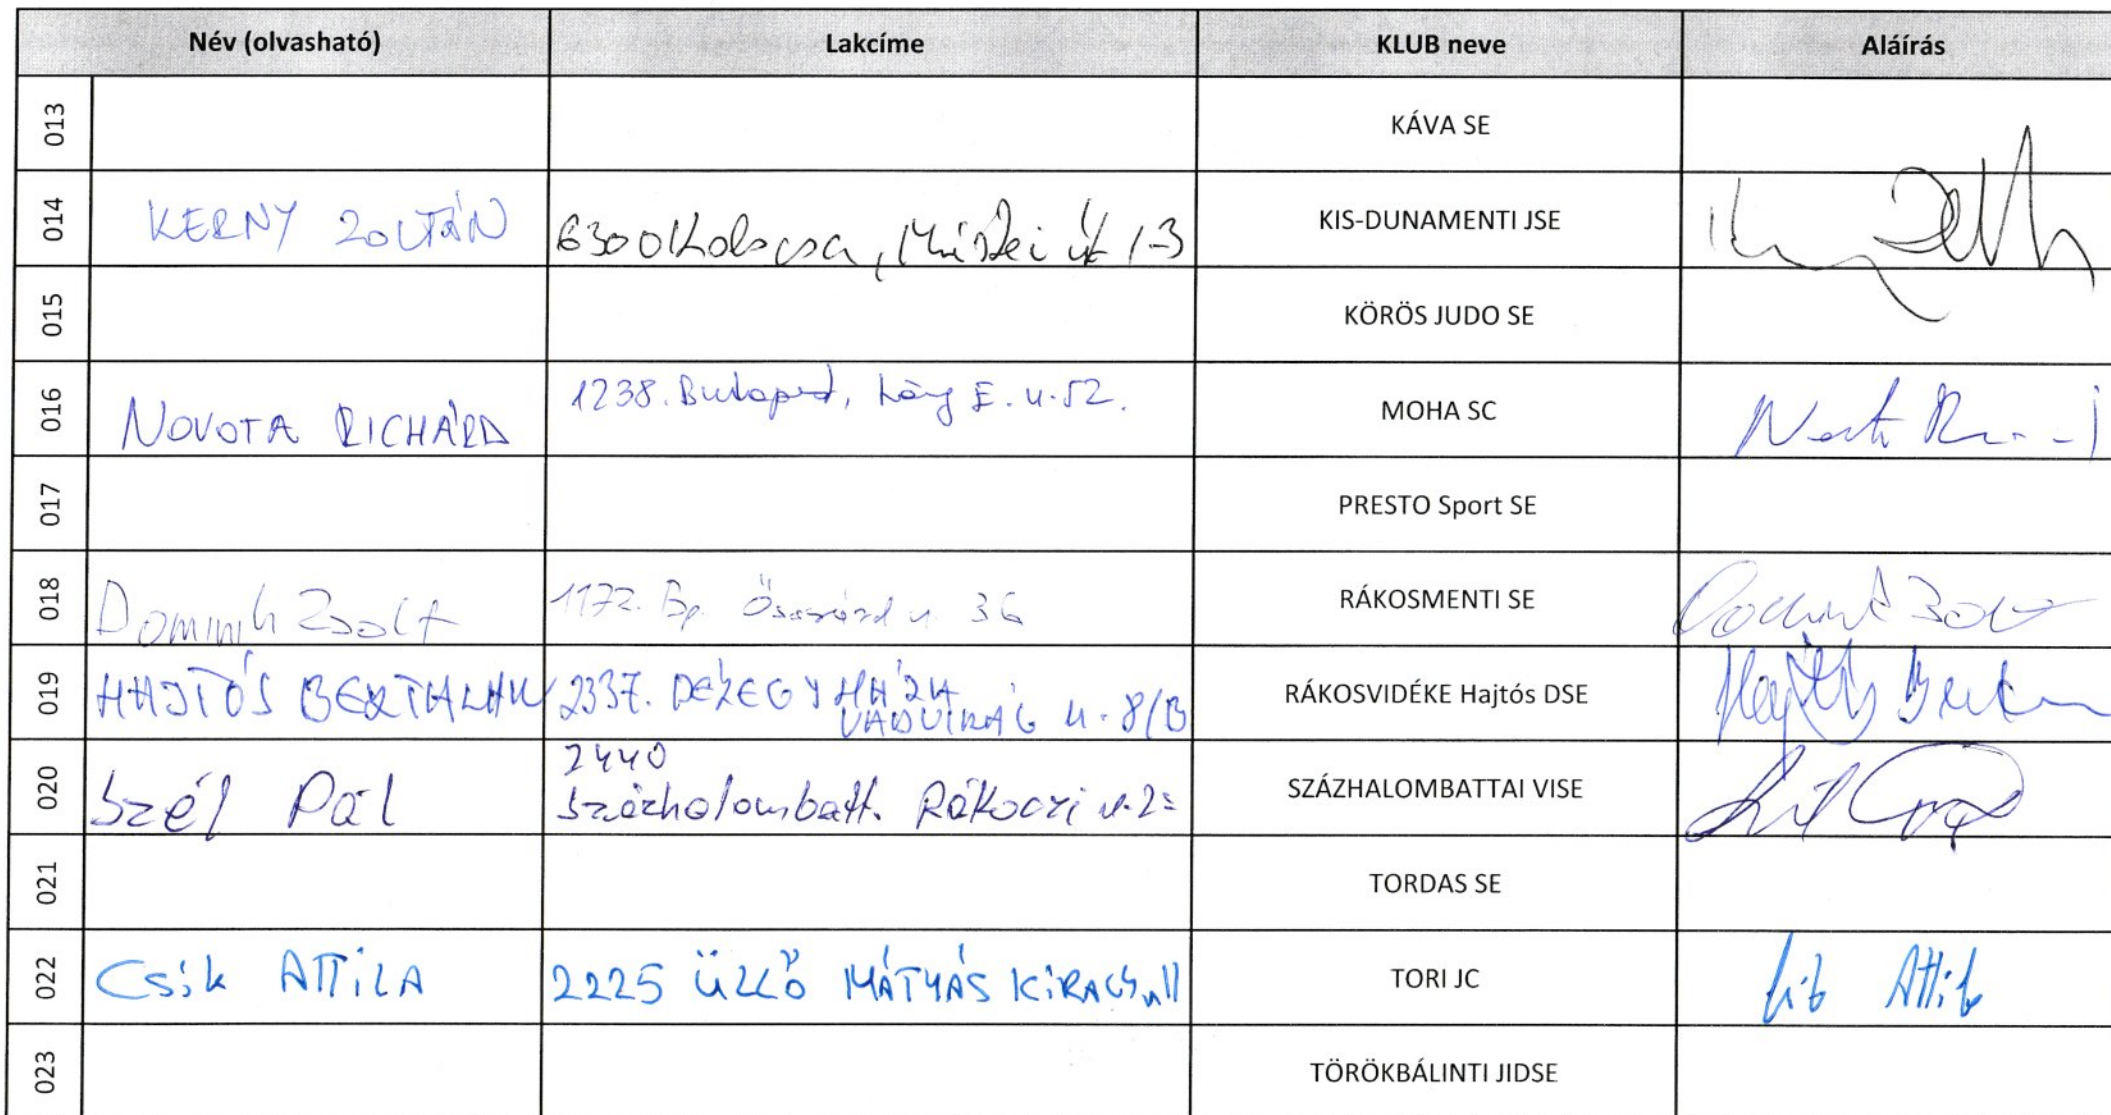 Név (olvasható) Lakcíme KLUB neve Aláírás
013 KÁVA SE
014 KERNY ZOLTÁN 6300 Kalocsa, út 1-3 KIS-DUNAMENTI JSE
015 KÖRÖS JUDO SE
016 NOVOTA RICHÁRD 1238. Budapest, Láng E. u. 52. MOHA SC
017 PRESTO Sport SE
018 Dominik Zsolt 1172. Bp. u 36 RÁKOSMENTI SE
019 HAJTÓS BERTALAN 2337. DÉLEGYHÁZA RÁKOSVIDÉKE Hajtós DSE Hajtós
VADVIRÁG u. 8/B
2440
020 Szél Pál Százhalombatt. Rákoczi u. SZÁZHALOMBATTAI VISE
021 TORDAS SE
022 Csik ATTILA 2225 ÜLLŐ MÁTYÁS KIRÁLY u 11 TORI JC Attila
023 TÖRÖKBÁLINTI JIDSE